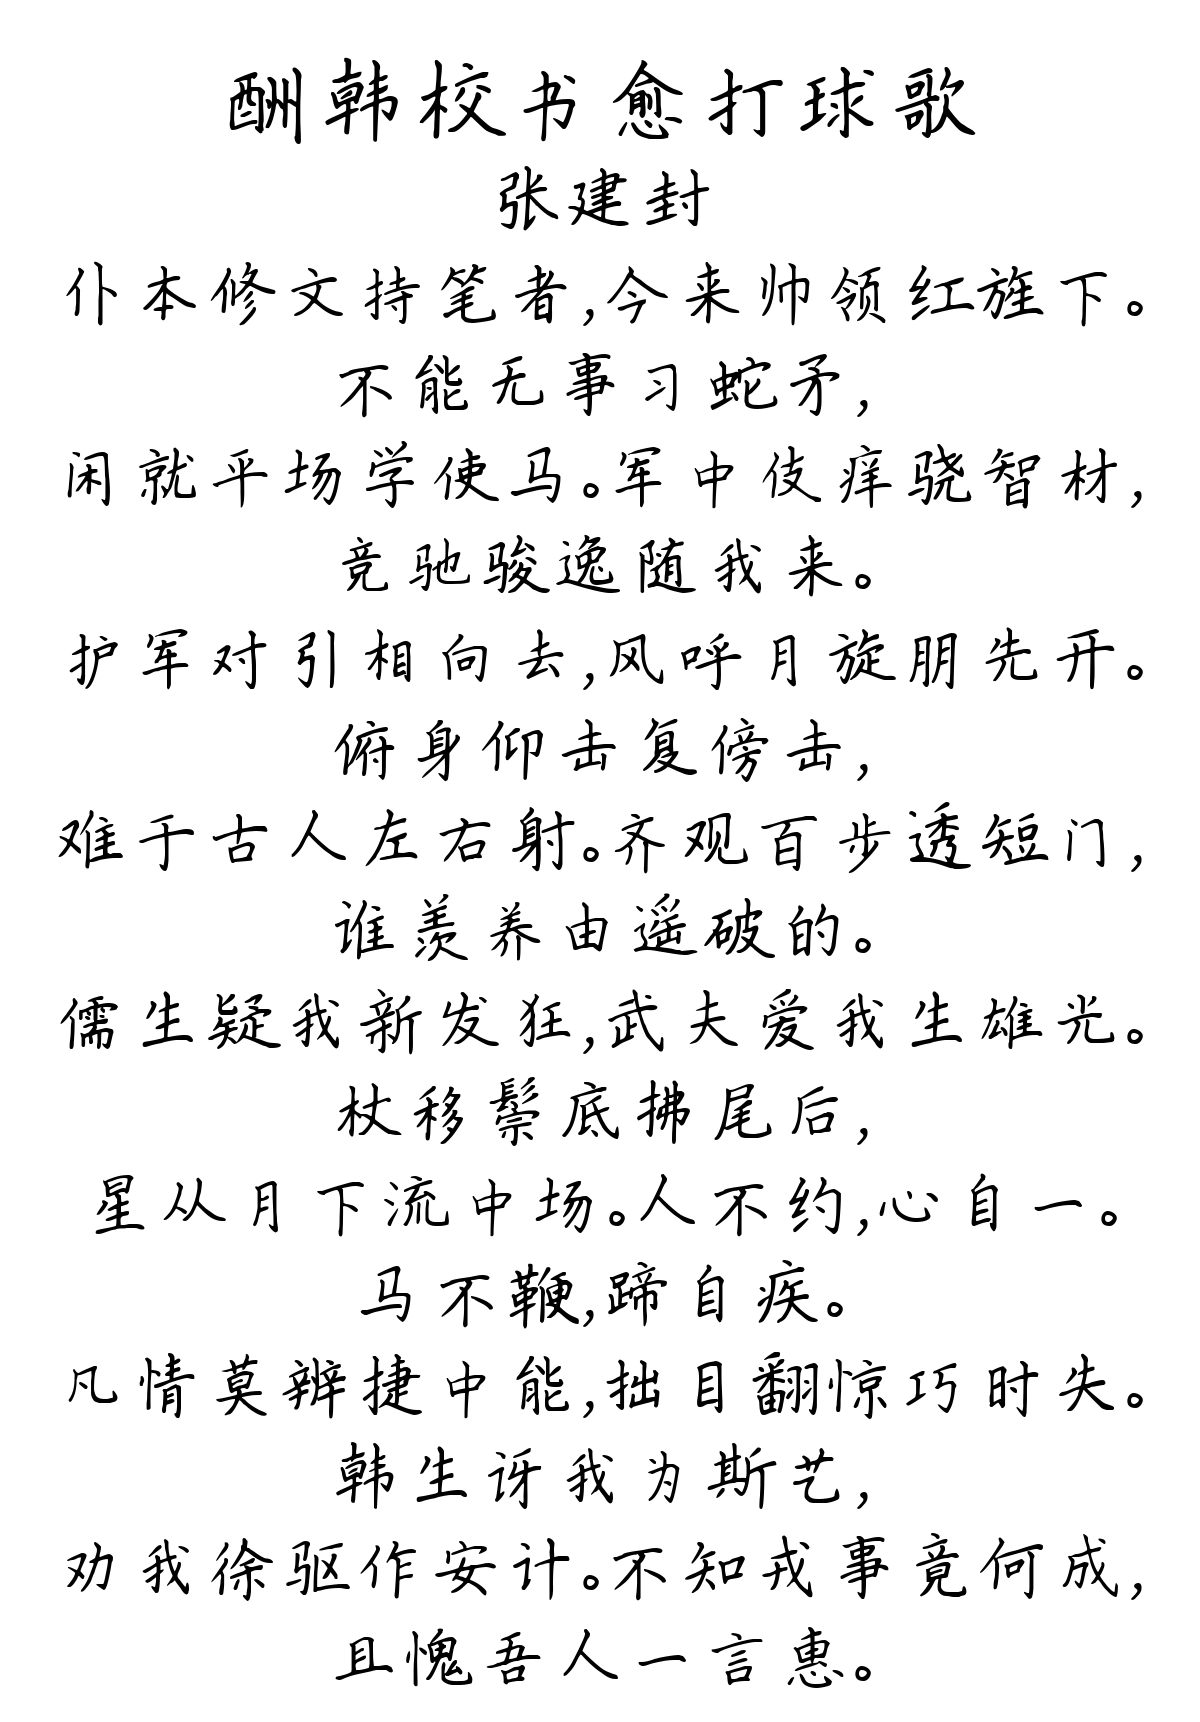 酬韩校书愈打球歌
张建封
仆本修文持笔者,今来帅领红旌下。
不能无事习蛇矛,
闲就平场学使马。军中伎痒骁智材,
竞驰骏逸随我来。
护军对引相向去,风呼月旋朋先开。
俯身仰击复傍击,
难于古人左右射。齐观百步透短门,
谁羡养由遥破的。
儒生疑我新发狂,武夫爱我生雄光。
杖移鬃底拂尾后,
星从月下流中场。人不约,心自一。
马不鞭,蹄自疾。
凡情莫辨捷中能,拙目翻惊巧时失。
韩生讶我为斯艺,
劝我徐驱作安计。不知戎事竟何成,
且愧吾人一言惠。